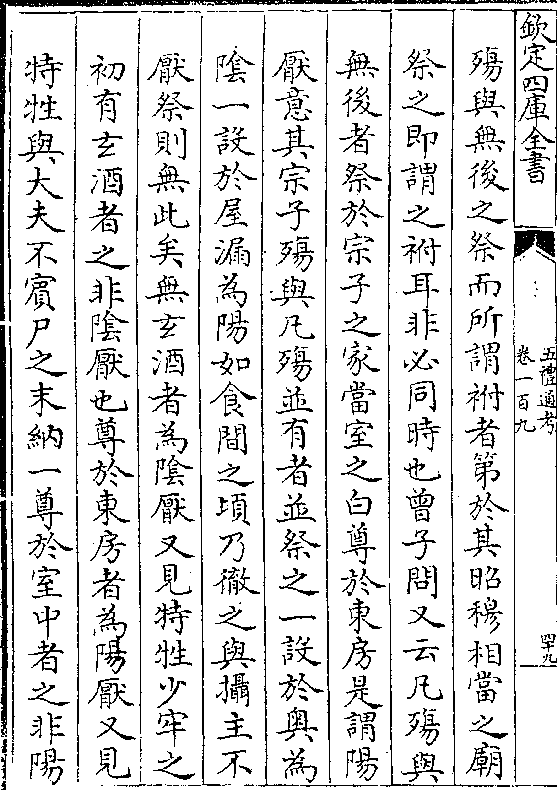 欽定四庫全書
五禮通考
卷一百九
四十九
殤與無後之祭而所謂祔者第於其昭穆相當之廟
祭之即謂之祔耳非必同時也曾子問又云凡殤與
無後者祭於宗子之家當室之白尊於東房是謂陽
厭意其宗子殤與凡殤並有者並祭之一設於奥為
陰一設於屋漏為陽如食間之頃乃徹之與攝主不
厭祭則無此矣無玄酒者為陰厭又見特牲少牢之
初有玄酒者之非陰厭也尊於東房者為陽厭又見
特牲與大夫不賔尸之末納一尊於室中者之非陽